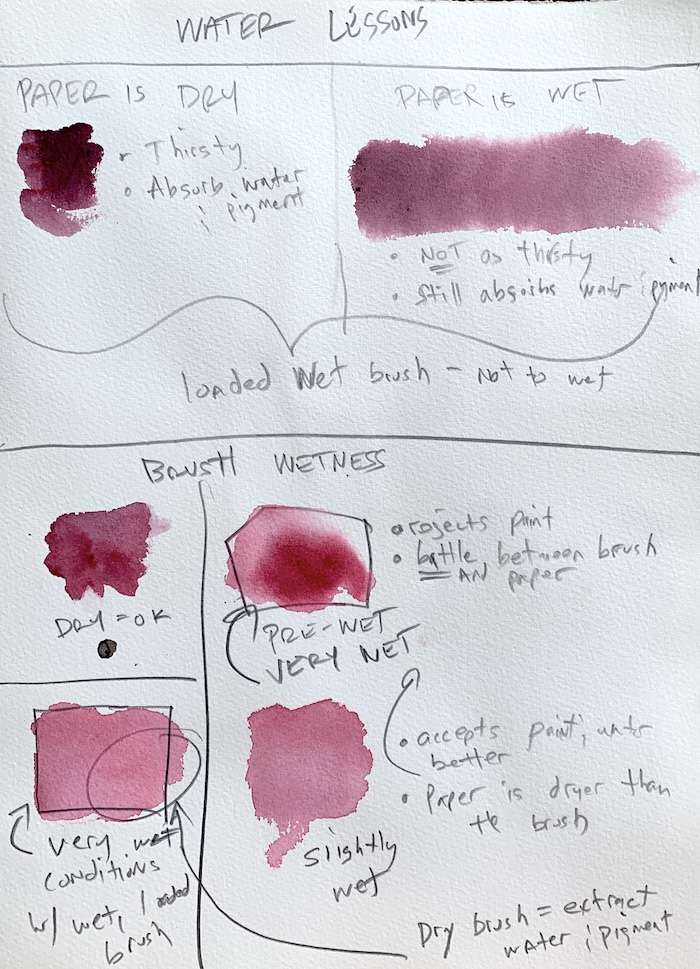 WATER LESSONS
PAPER IS DRY
• Thirsty
• Absorb water
& pigment
PAPER IS WET
• NOT as thirsty
• Still absorbs water & pigment
loaded Wet brush - Not to wet
BRUSH WETNESS
DRY = OK
• rejects paint
• battle between brush
AN paper
PRE-WET
VERY WET
• accepts paint & watr
better
• Paper is dryer than
the brush
slightly
wet
very wet
conditions
w/ wet, loaded
brush
Dry brush = extract
water & pigment